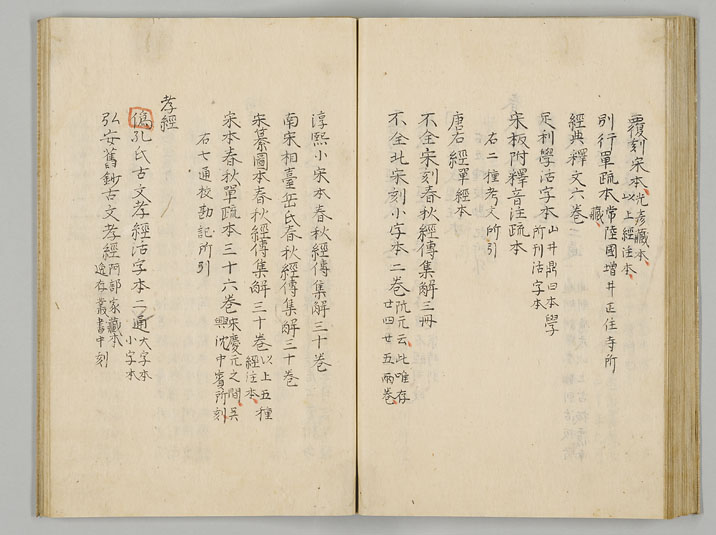 覆刻宋本 光彦藏本 以上經注本
別行單疏本 常陸國增井正住寺所藏
經典釋文六卷
足利學活字本 山井鼎曰本學所刊活字本
宋板附釋音注疏本
右二種考文所引
唐石經 單經本
不全宋刻春秋經傳集解三冊
不全北宋刻小字本二卷 阮元云此唯存廿四廿五兩卷
淳熙小宋本春秋經傳集解三十卷
南宋相臺岳氏春秋經傳集解三十卷
宋纂圖本春秋經傳集解三十卷 以上五種經注本
宋本春秋單疏本三十六卷 宋慶元之間吳興沈中賓所刻
右七通校勘記所引
孝經
僞孔氏古文孝經活字本二通 大字本 小字本
弘安舊鈔古文孝經 阿部家藏本 逸存叢書中刻